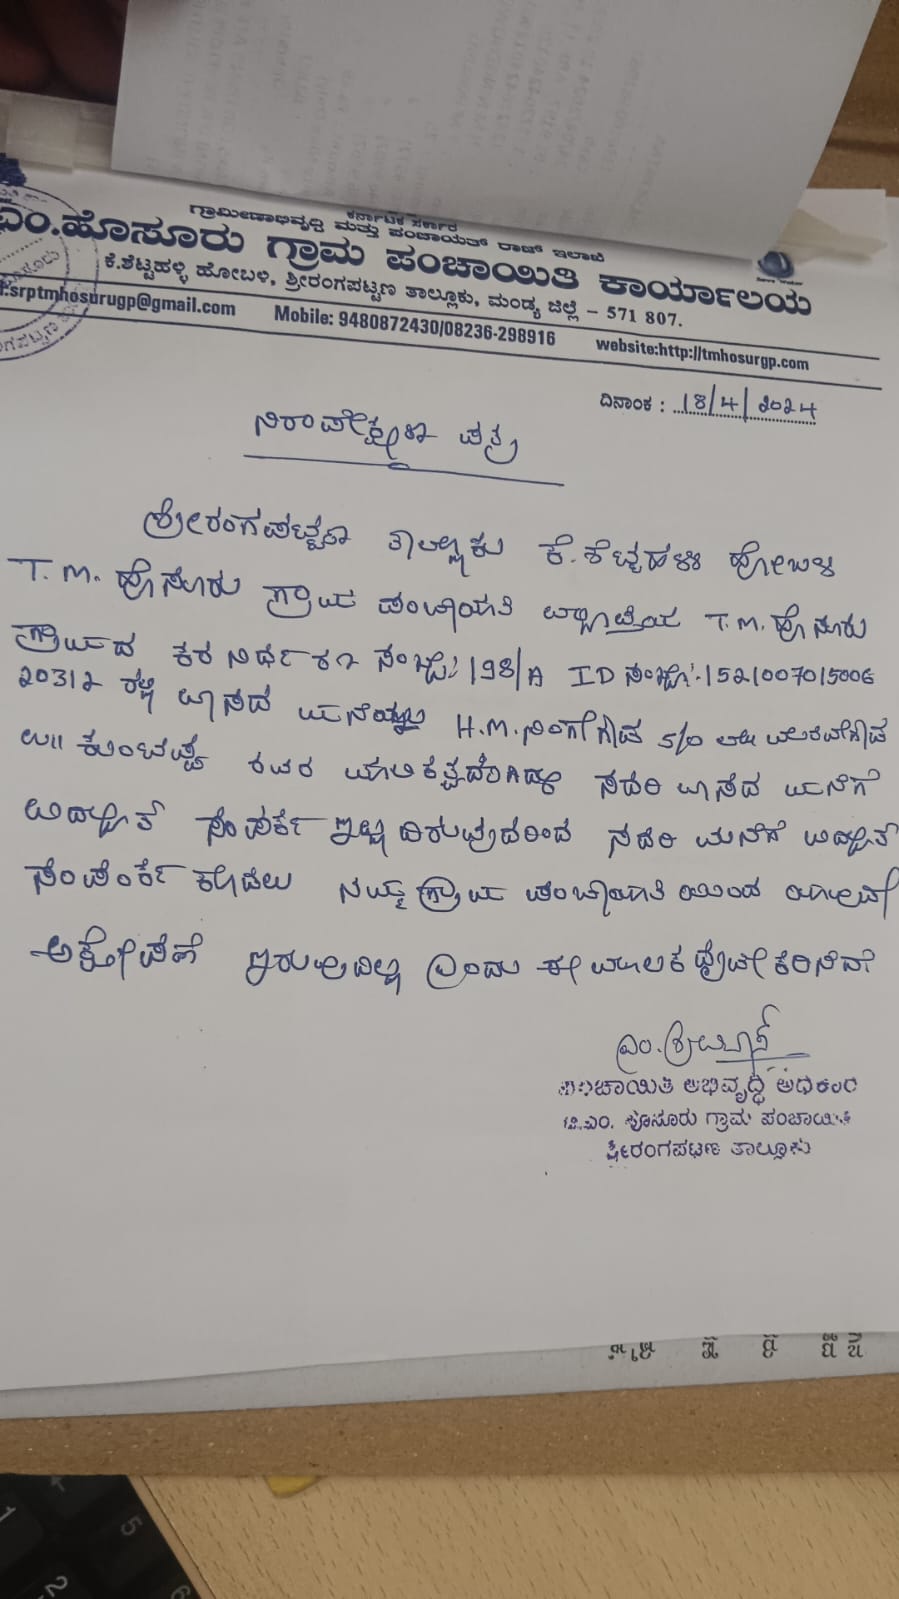 ಕರ್ನಾಟಕ ಸರ್ಕಾರ
ಗ್ರಾಮೀಣಾಭಿವೃದ್ಧಿ ಮತ್ತು ಪಂಚಾಯತ್ ರಾಜ್ ಇಲಾಖೆ
ಎಂ.ಹೊಸೂರು ಗ್ರಾಮ ಪಂಚಾಯಿತಿ ಕಾರ್ಯಾಲಯ
ಕೆ.ಶೆಟ್ಟಹಳ್ಳಿ ಹೋಬಳಿ, ಶ್ರೀರಂಗಪಟ್ಟಣ ತಾಲ್ಲೂಕು, ಮಂಡ್ಯ ಜಿಲ್ಲೆ - 571 807.
:srptmhosurugp@gmail.com Mobile: 9480872430/08236-298916 website:http://tmhosurgp.com
ದಿನಾಂಕ : 18/4/2024
ನಿರಾಪೇಕ್ಷಣಾ ಪತ್ರ
ಶ್ರೀರಂಗಪಟ್ಟಣ ತಾಲ್ಲೂಕು ಕೆ.ಶೆಟ್ಟಹಳ್ಳಿ ಹೋಬಳಿ
T.M. ಹೊಸೂರು ಗ್ರಾಮ ಪಂಚಾಯಿತಿ ವ್ಯಾಪ್ತಿಯ T.M.ಹೊಸೂರು
ಗ್ರಾಮದ ಕರ ನಿರ್ಧರಣಾ ಸಂಖ್ಯೆ: 198/A ID ಸಂಖ್ಯೆ:-1521007015006
20312 ರಲ್ಲಿ ವಾಸದ ಮನೆಯು H.M.ನಿಂಗೇಗೌಡ S/O ಲೇ॥
ಉ॥ ಕುಂಬಪ್ಪ ರವರ ಮಾಲಿಕತ್ವದಾಗಿದ್ದು ಸದರಿ ವಾಸದ ಮನೆಗೆ
ವಿದ್ಯುತ್ ಸಂಪರ್ಕ ಇಲ್ಲದಿರುವುದರಿಂದ ಸದರಿ ಮನೆಗೆ ವಿದ್ಯುತ್
ಸಂಪರ್ಕ ನೀಡಲು ನಮ್ಮ ಗ್ರಾಮ ಪಂಚಾಯಿತಿ ಯಿಂದ ಯಾವುದೇ
ಆಕ್ಷೇಪಣೆ ಇರುವುದಿಲ್ಲ ಎಂದು ಈ ಮೂಲಕ ದೃಢೀಕರಿಸಿದೆ
ಪಂಚಾಯಿತಿ ಅಭಿವೃದ್ಧಿ ಅಧಿಕಾರಿ
ಟಿ.ಎಂ. ಹೊಸೂರು ಗ್ರಾಮ ಪಂಚಾಯಿತಿ
ಶ್ರೀರಂಗಪಟ್ಟಣ ತಾಲ್ಲೂಕು